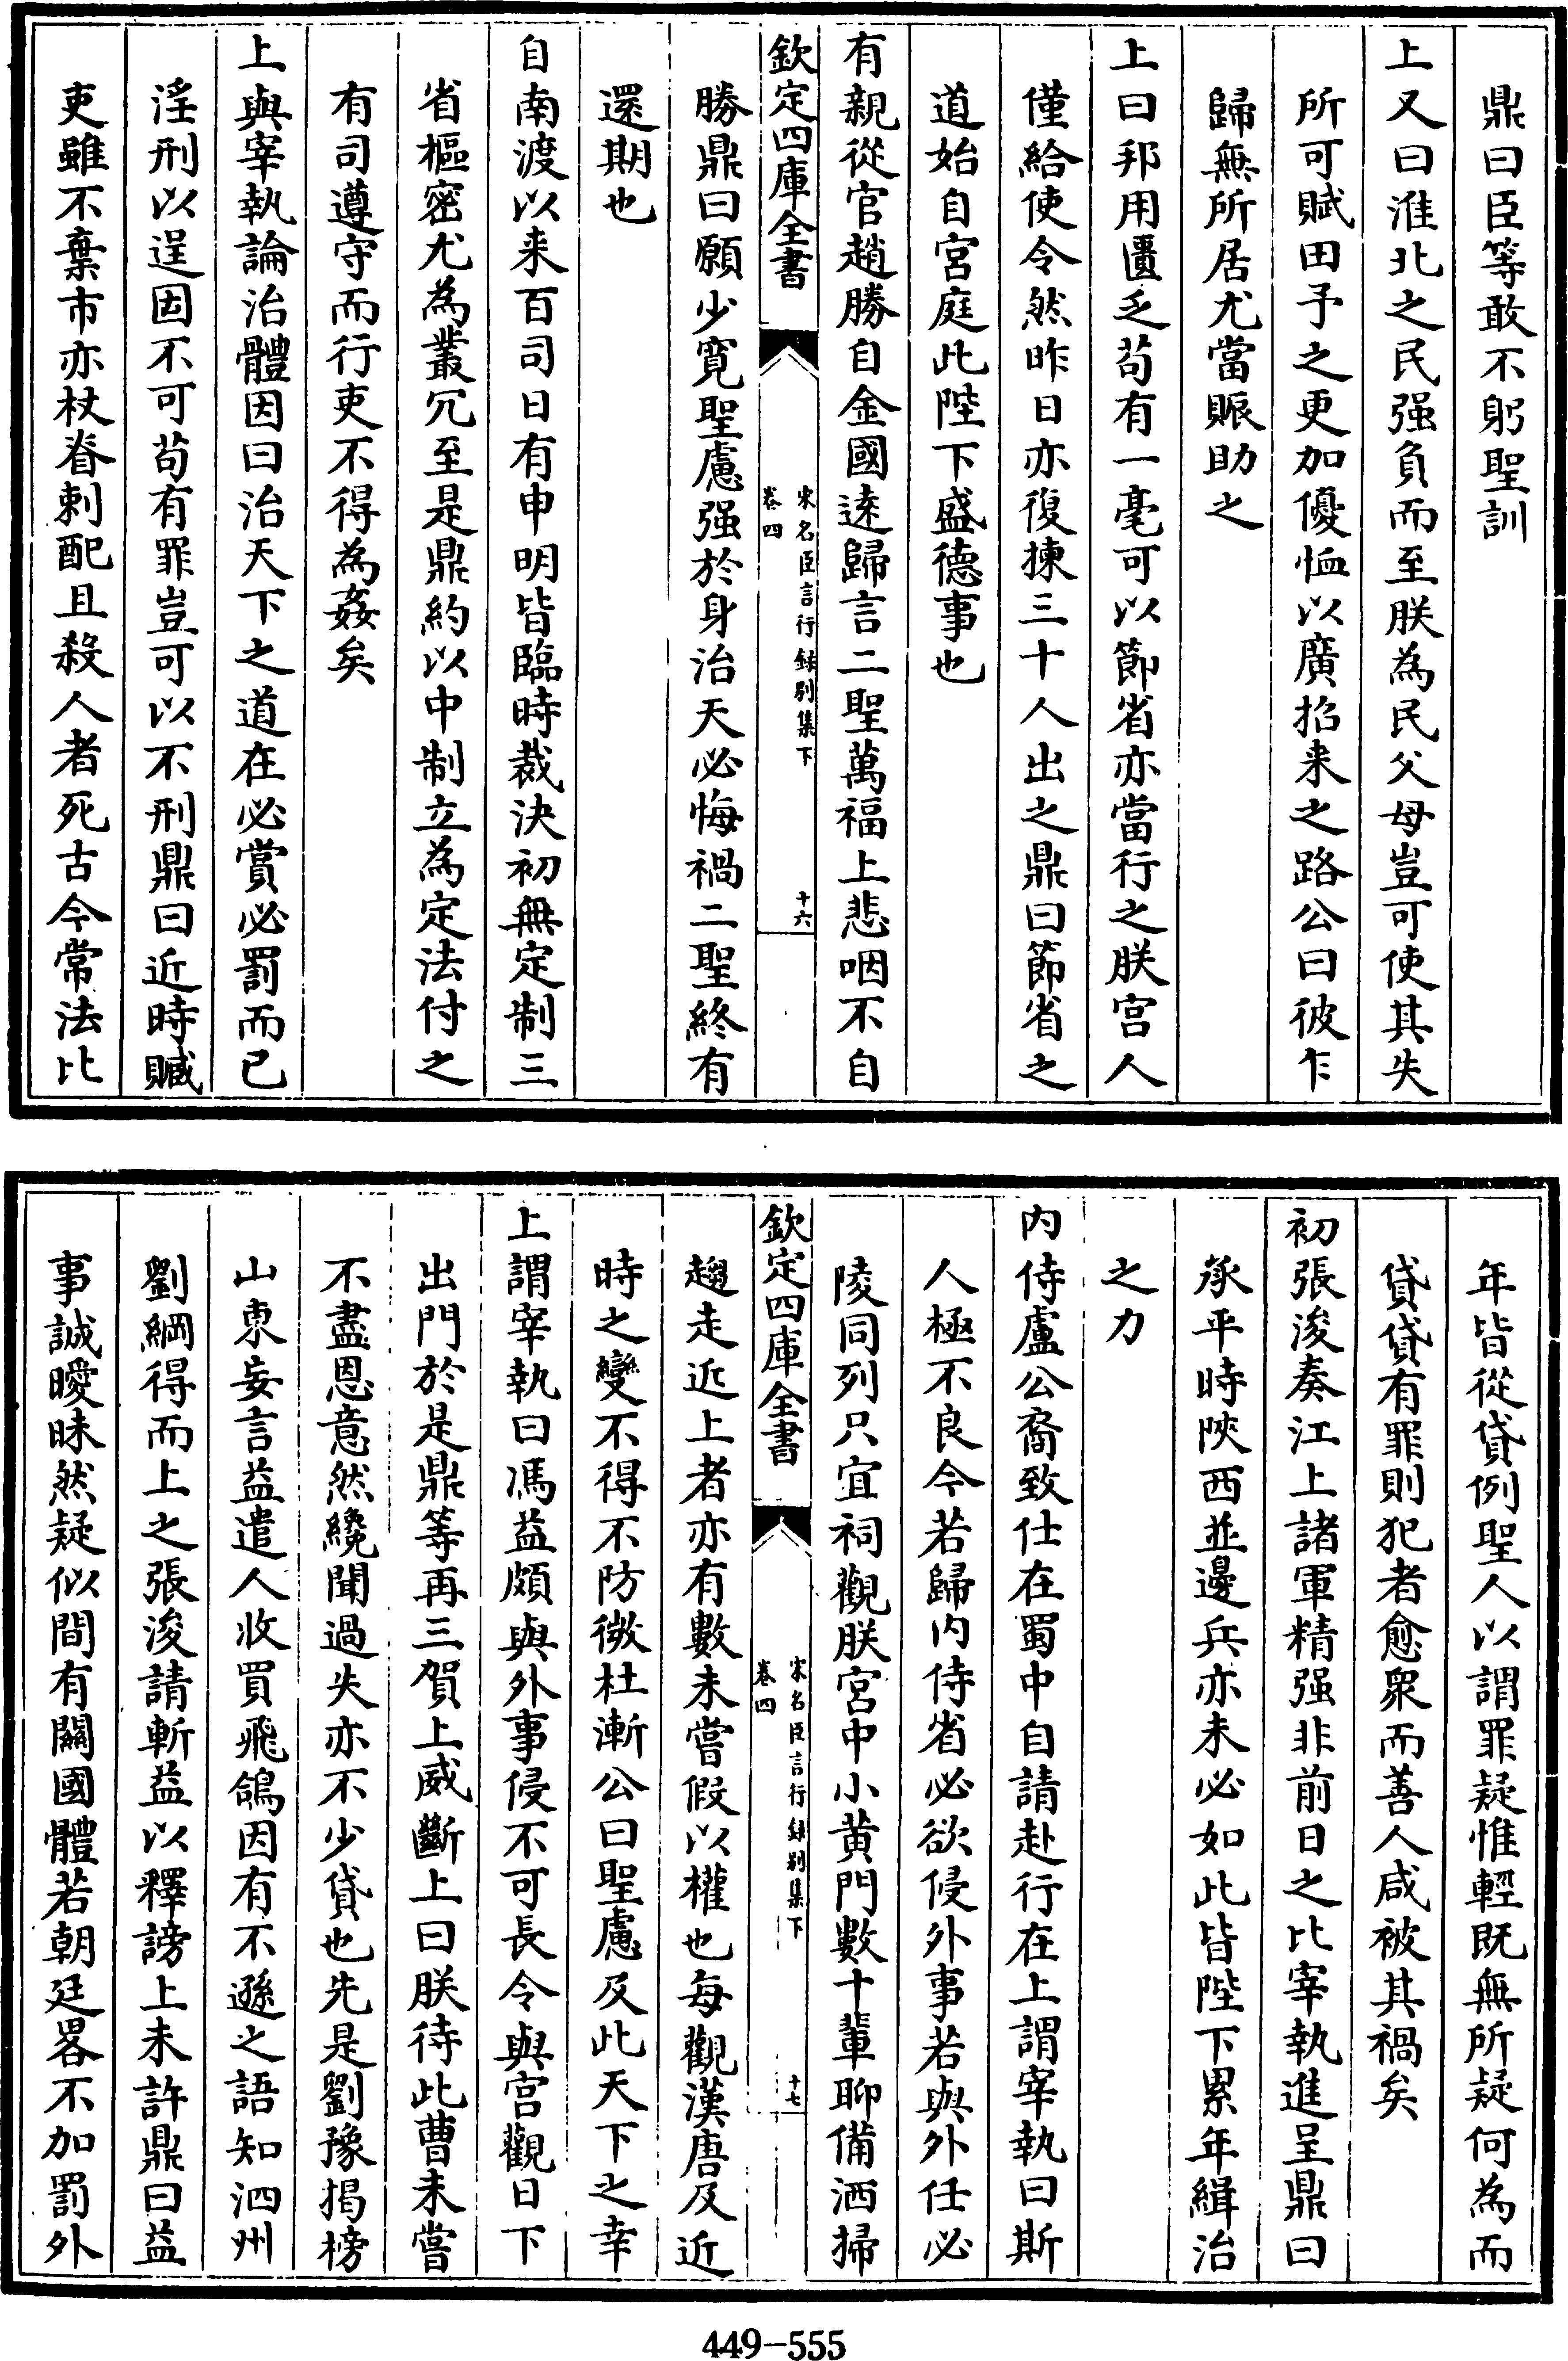 鼎曰臣等敢不躬聖訓
上又曰淮北之民强負而至朕為民父母豈可使其失
所可賦田予之更加優恤以廣招来之路公曰彼乍
歸無所居尤當賑助之
上曰邦用匱乏苟有一毫可以節省亦當行之朕宫人
僅給使令然昨日亦復揀三十人出之鼎曰節省之
道始自宫庭此陛下盛德事也
有親從官趙勝自金國逺歸言二聖萬福上悲咽不自
欽定四庫全書
宋名臣言行録别集下
卷四
十六
勝鼎曰願少寛聖慮强於身治天必悔禍二聖終有
還期也
自南渡以来百司日有申明皆臨時裁決初無定制三
省樞密尤為叢冗至是鼎約以中制立為定法付之
有司遵守而行吏不得為姦矣
上與宰執論治體因曰治天下之道在必賞必罰而已
淫刑以逞因不可苟有罪豈可以不刑鼎曰近時贓
吏雖不棄市亦杖脊刺配且殺人者死古今常法比
年皆從貸例聖人以謂罪疑惟輕既無所疑何為而
貸貸有罪則犯者愈衆而善人咸被其禍矣
初張浚奏江上諸軍精强非前日之比宰執進呈鼎曰
承平時陜西並邊兵亦未必如此皆陛下累年緝治
之力
内侍盧公裔致仕在蜀中自請赴行在上謂宰執曰斯
人極不良今若歸内侍省必欲侵外事若與外任必
陵同列只宜祠觀朕宫中小黄門數十輩聊備洒掃
欽定四庫全書
宋名臣言行録别集下
卷四
十七
趨走近上者亦有數未嘗假以權也每觀漢唐及近
時之變不得不防微杜漸公曰聖慮及此天下之幸
上謂宰執曰馮益頗與外事侵不可長令與宫觀日下
出門於是鼎等再三賀上威斷上曰朕待此曹未嘗
不盡恩意然纔聞過失亦不少貸也先是劉豫揭榜
山東妄言益遣人收買飛鴿因有不遜之語知泗州
劉綱得而上之張浚請斬益以釋謗上未許鼎曰益
事誠曖昧然疑似間有闗國體若朝廷畧不加罰外
449-555